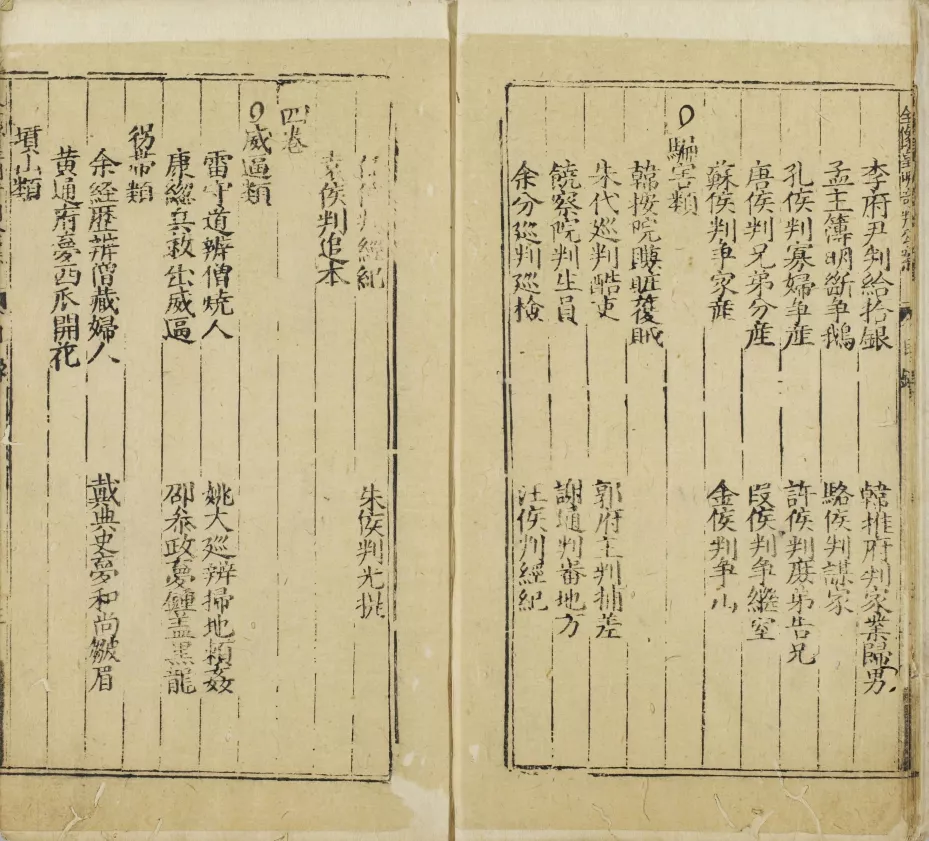 李府尹判給拾銀 韓推府判家業歸男
孟主簿明斷爭鵝 駱侯判謀家
孔侯判寡婦爭産 許侯判庶弟告兄
唐侯判兄弟分産 段侯判爭繼室
蘇侯判爭家産 金侯判爭山
騙害類
韓按院賺賍獲賊
朱代巡判酷吏 郭府主判捕差
饒察院判生員 謝通判審地方
余分巡判巡檢 汪侯判經紀
侯判經紀 朱侯判光棍
袁侯判追本
四卷
威逼類
雷守道辨僧燒人 姚大巡辨掃地賴姦
康總兵救出威逼 邵叅政夢鍾盖黑龍
拐帶類
余経歷辨僧藏婦人 戴典史夢和尚皺眉
黃通府夢西瓜開花
墳山類